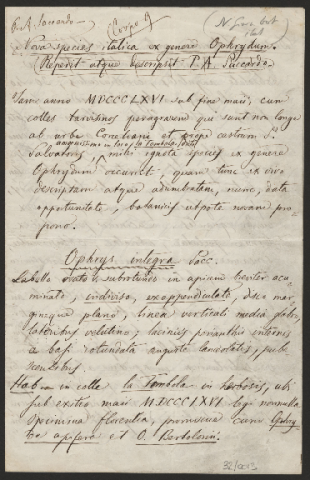 P. A. Saccardo
(Corpo 9)
N. Gior. bot.
ital.
Nova species italica ex genere Ophrydum.
Repedit atque descripsit P. A. Saccardo.
Jam anno MDCCCLXVI sub fine maii, cum
colles tarvisinos peragrarem qui sunt non longe
ab urbe Coneliano et prope castrum S.
Salvatoris, mihi ignota species ex genere
Ophrydum occurit, quam tunc ex vivo
descriptam atque adumbratam, nunc, data
opportunitate, botanicis utpote novam pro-
pono.
Ophrys integra Sacc.
Labello ovato subrotundo in apicem breviter acu-
minato, indiviso, exappendiculato, disco mar-
gineque plano, linea verticali media glabra,
lateribus velutino; laciniis perianthii interioris
a basi rotundata anguste lanceolatis, pub-
scentibus.
Hab. in colle la Tombola in herbosis, ubi
sub exitu maii MDCCCLXVI legi nonnulla
specimina florentia, promiscua cum Ophry-
de apifera et O. Bertolonii.